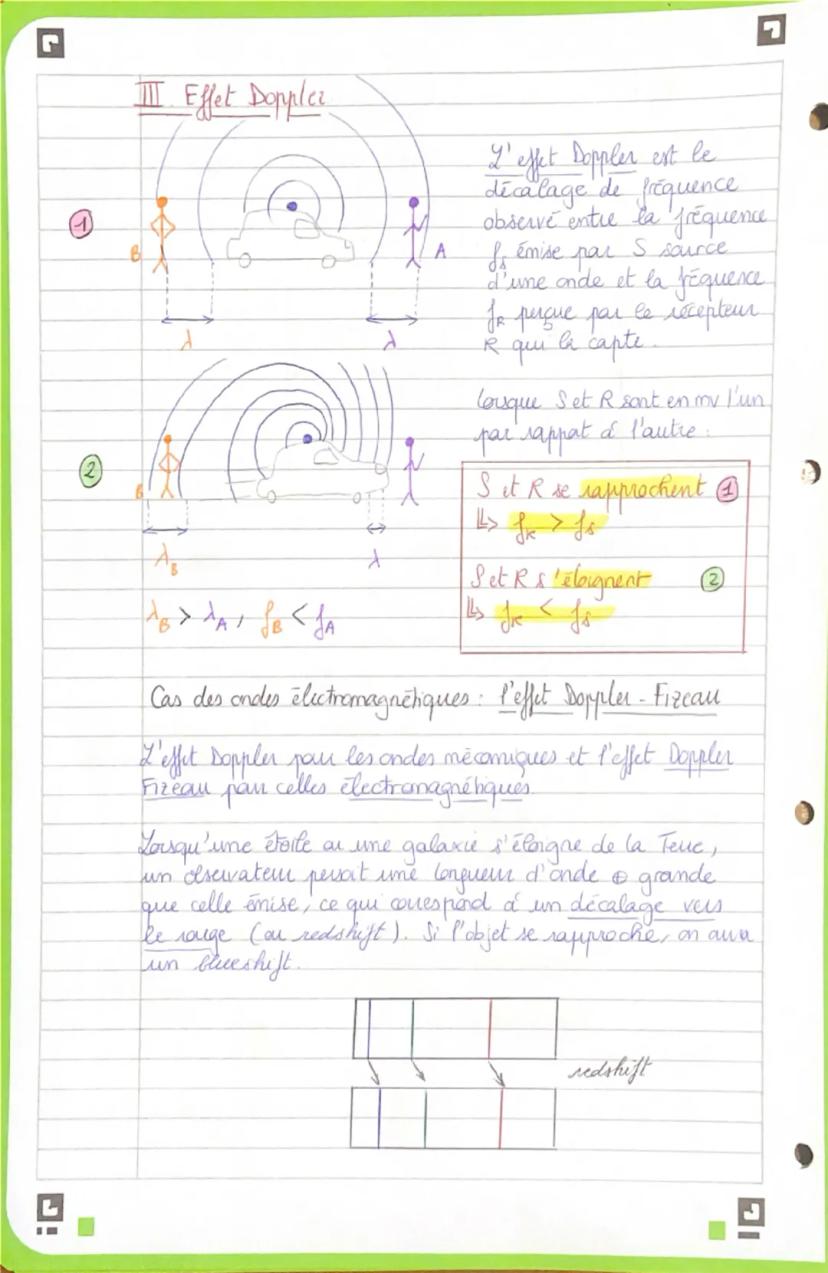 III. Effet Doppler
1
B
A
λ
λ
L'effet Doppler est le
décalage de fréquence
observé entre la fréquence
fs émise par S source
d'une onde et la fréquence
fR perçue par le récepteur
R qui la capte.
2
B
λB
λ
λB > λA, fB < fA
Lorsque S et R sont en mv l'un
par rappat à l'autre :
S et R se rapprochent 1
↳ fR > fs
S et R s'éloignent 2
↳ fR < fs
Cas des ondes électromagnétiques : l'effet Doppler - Fizeau
L'effet Doppler pour les ondes mécaniques et l'effet Doppler
Fizeau pour celles électromagnétiques.
Lorsqu'une étoile ou une galaxie s'éloigne de la Terre,
un observateur perçoit une longueur d'onde ⊕ grande
que celle émise, ce qui correspond à un décalage vers
le rouge (ou redshift). Si l'objet se rapproche, on aura
un blueshift.
redshift